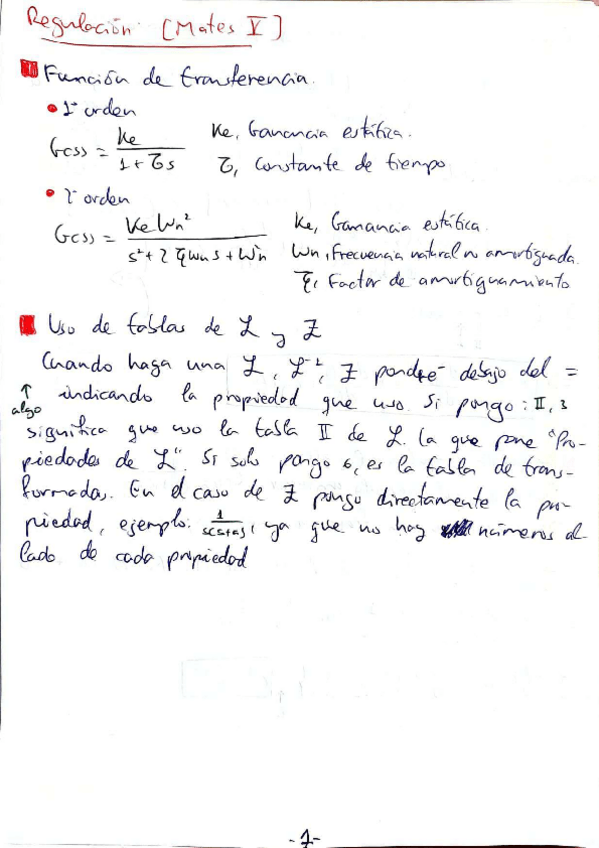 Regulación [Mates V]
Función de transferencia.
• 1º orden
G(s) = Ke / (1 + τs)   Ke, Ganancia estática.
τ, Constante de tiempo
• 2º orden
G(s) = Ke Wn² / (s² + 2ξWn s + Wn²)   Ke, Ganancia estática.
Wn, Frecuencia natural no amortiguada.
ξ, Factor de amortiguamiento
Uso de tablas de ℒ y Z
Cuando haga una ℒ, ℒ⁻¹, Z pondré debajo del =
↑ algo indicando la propiedad que uso. Si pongo: II, 3
significa que uso la tabla II de ℒ. La que pone "Pro-
piedades de ℒ". Si solo pongo 6, es la tabla de trans-
formadas. En el caso de Z pongo directamente la pro-
piedad, ejemplo: 1/s(s+a), ya que no hay números al
lado de cada propiedad
-1-